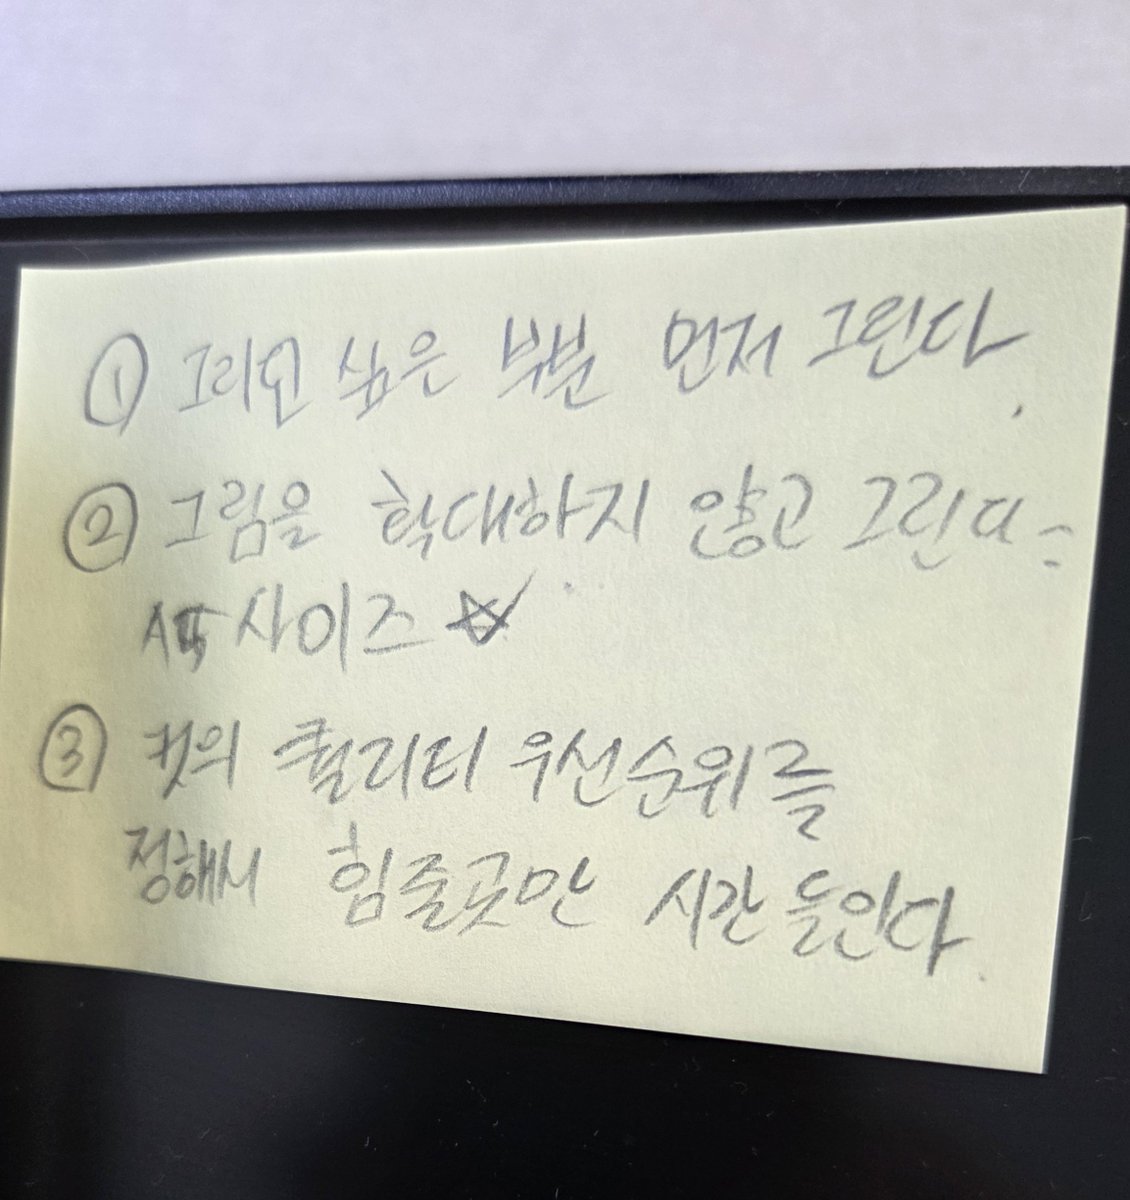 ① 그리고 싶은 부분 먼저 그린다.
② 그림을 확대하지 않고 그린다=
A5 사이즈 ☆
③ 컷의 퀄리티 우선순위를
정해서 힘줄곳만 시간 들인다.